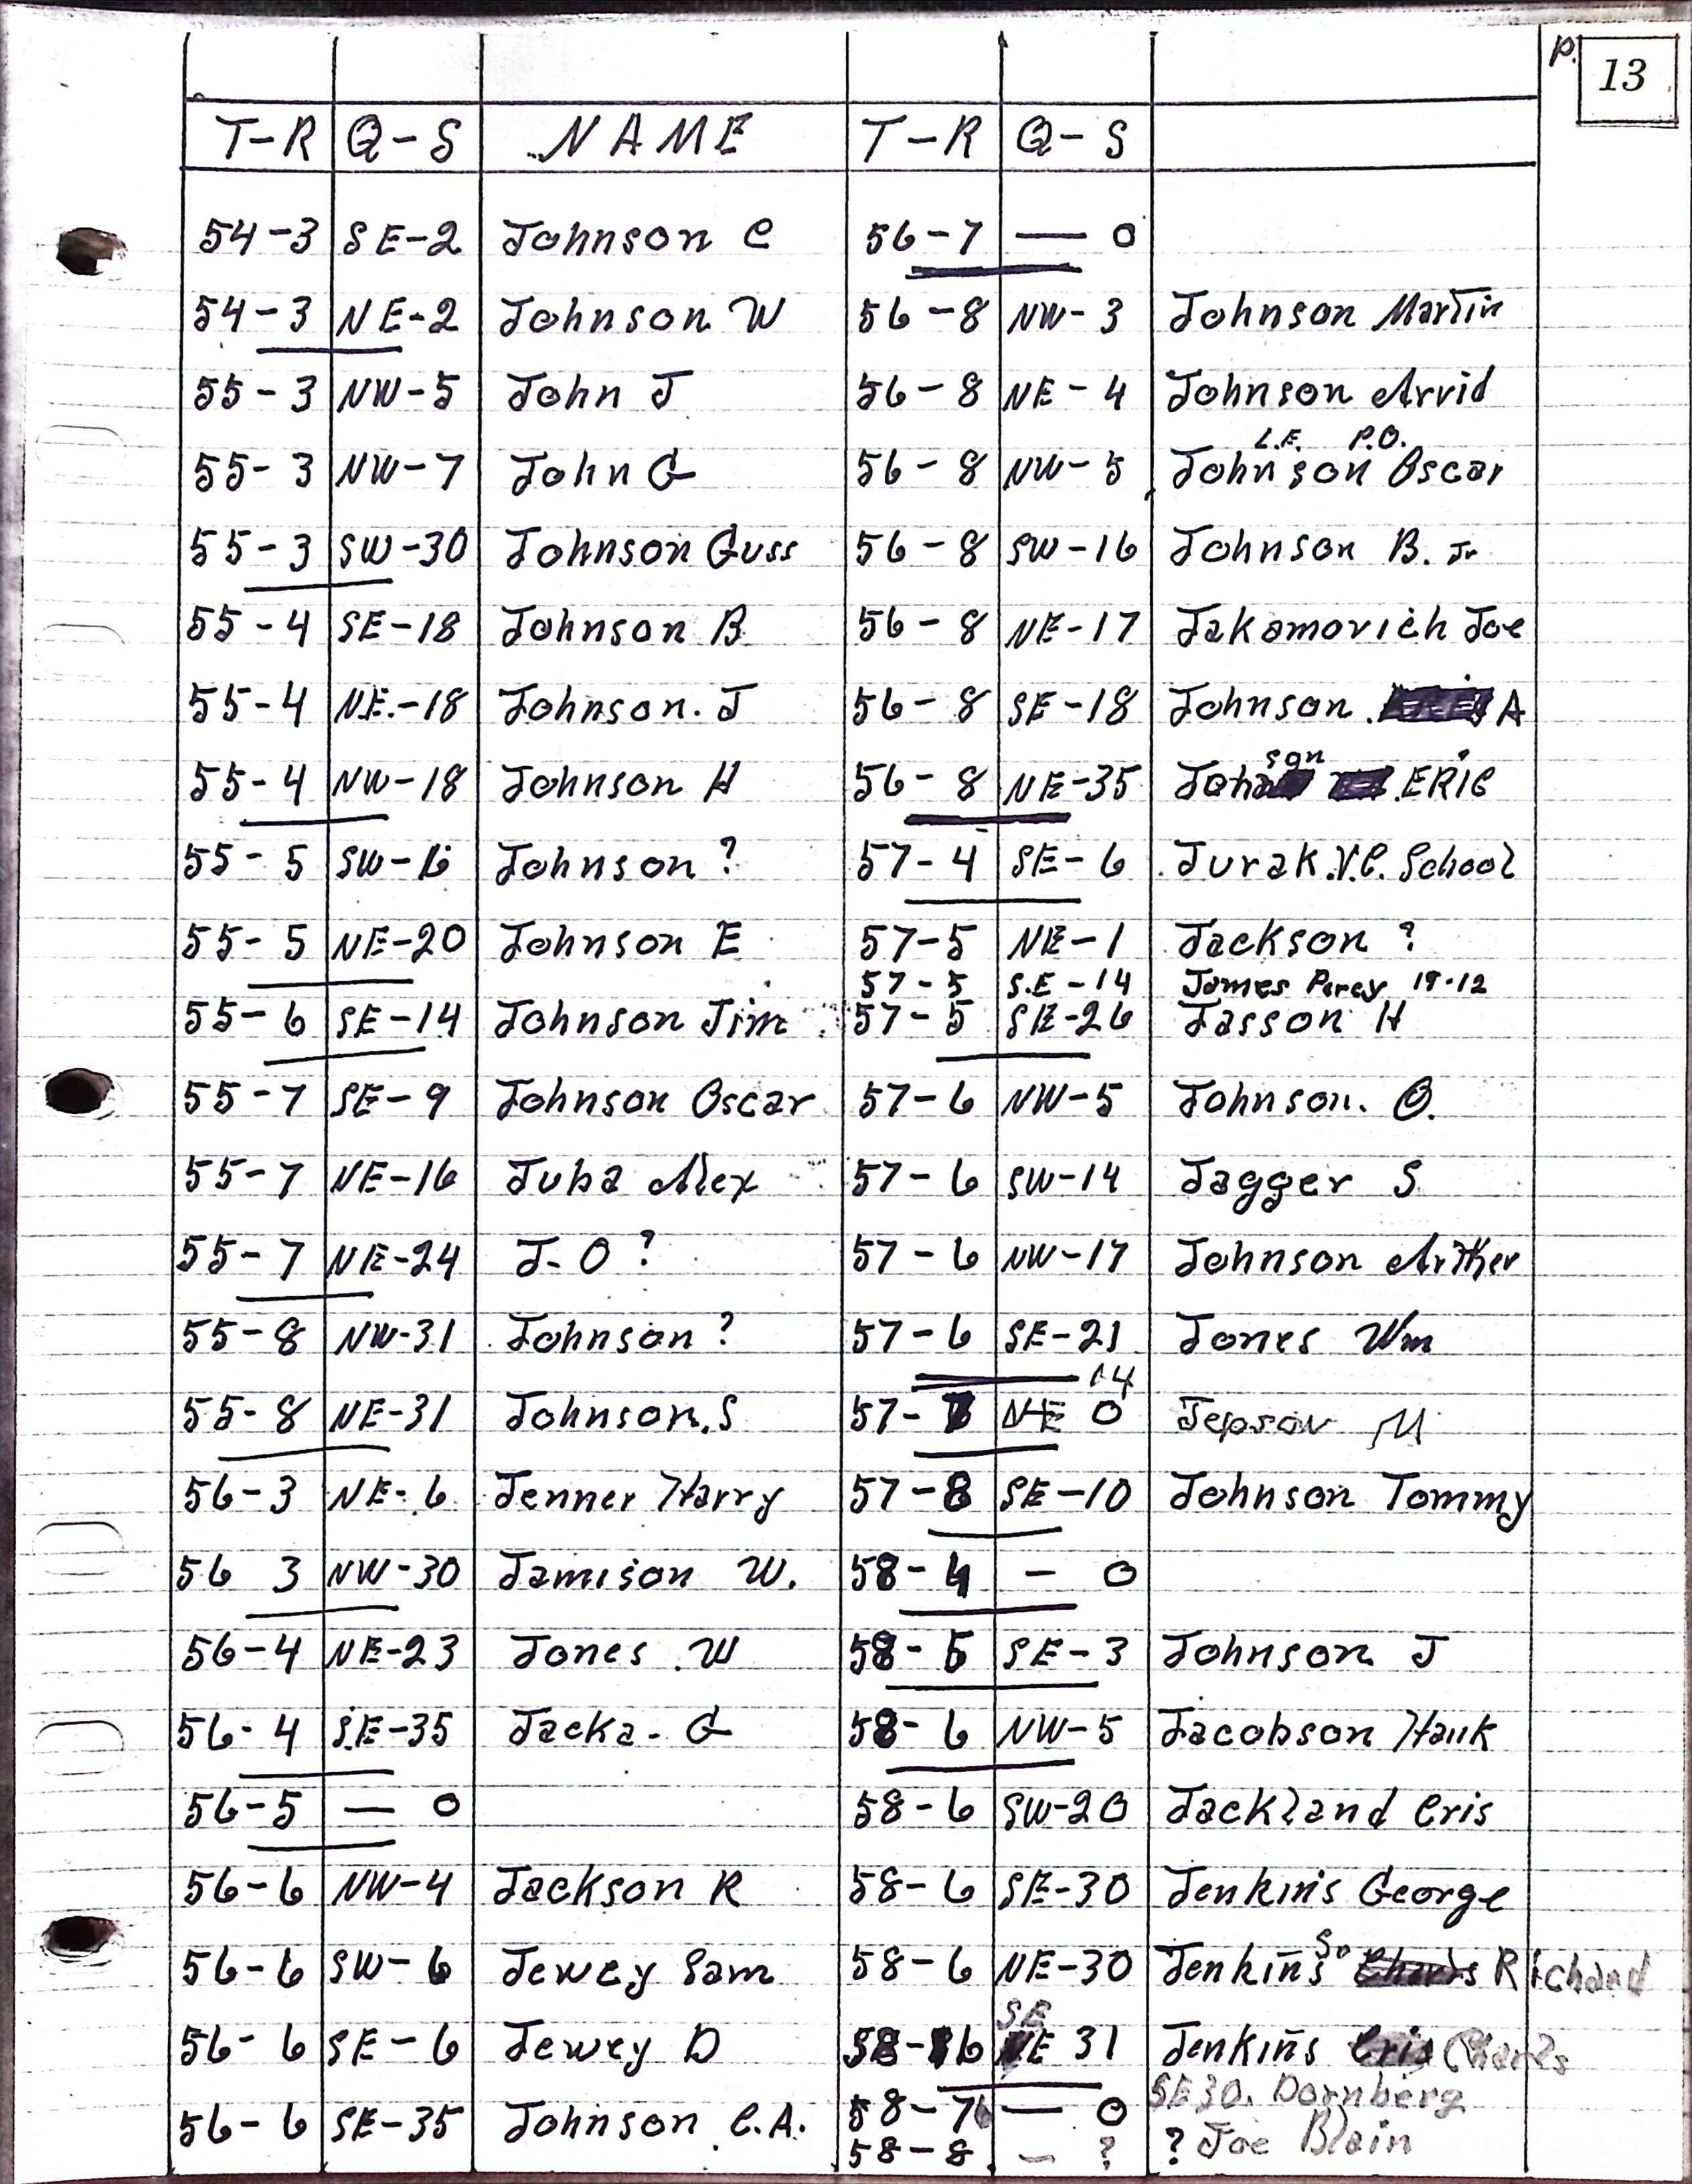 P. 13
T-R Q-S NAME T-R Q-S
54-3 SE-2 Johnson C 56-7 — 0
54-3 NE-2 Johnson W 56-8 NW-3 Johnson Martin
55-3 NW-5 John J 56-8 NE-4 Johnson Arvid
L.E. P.O.
55-3 NW-7 John G 56-8 NW-5 Johnson Oscar
55-3 SW-30 Johnson Guss 56-8 SW-16 Johnson B. Jr
55-4 SE-18 Johnson B 56-8 NE-17 Jakamovich Joe
55-4 NE-18 Johnson J 56-8 SE-18 Johnson A
son
55-4 NW-18 Johnson H 56-8 NE-35 Joha ERIC
55-5 SW-16 Johnson ? 57-4 SE-6 Jurak V.C. School
55-5 NE-20 Johnson E 57-5 NE-1 Jackson ?
57-5 S.E-14 James Percy 19-12
55-6 SE-14 Johnson Jim 57-5 SE-26 Jasson H
55-7 SE-9 Johnson Oscar 57-6 NW-5 Johnson. O.
55-7 NE-16 Juba Alex 57-6 SW-14 Jagger S
55-7 NE-24 J-O ? 57-6 NW-17 Johnson Arther
55-8 NW-31 Johnson ? 57-6 SE-21 Jones Wm
14
55-8 NE-31 Johnson.S 57-7 NE 0 Jepson M
56-3 NE-6 Jenner Harry 57-8 SE-10 Johnson Tommy
56 3 NW-30 Jamison W. 58-4 - 0
56-4 NE-23 Jones W 58-5 SE-3 Johnson J
56-4 SE-35 Jacka-G 58-6 NW-5 Jacobson Hank
56-5 — 0 58-6 SW-20 Jackland Cris
56-6 NW-4 Jackson R 58-6 SE-30 Jenkins George
56-6 SW-6 Jewey Sam 58-6 NE-30 Jenkins Sr Charles Richard
SE
56-6 SE-6 Jewey D 58-6 NE 31 Jenkins Cris Charles
SE30. Dornberg
56-6 SE-35 Johnson C.A. 58-7 — 0
58-8 - ? ? Joe Blain